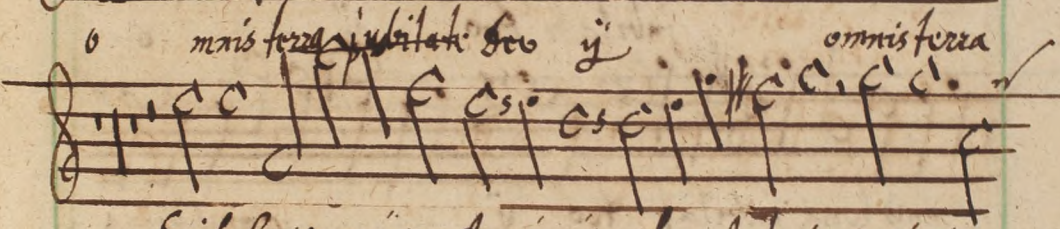 o mnis terra jubilate deo ij omnis terra